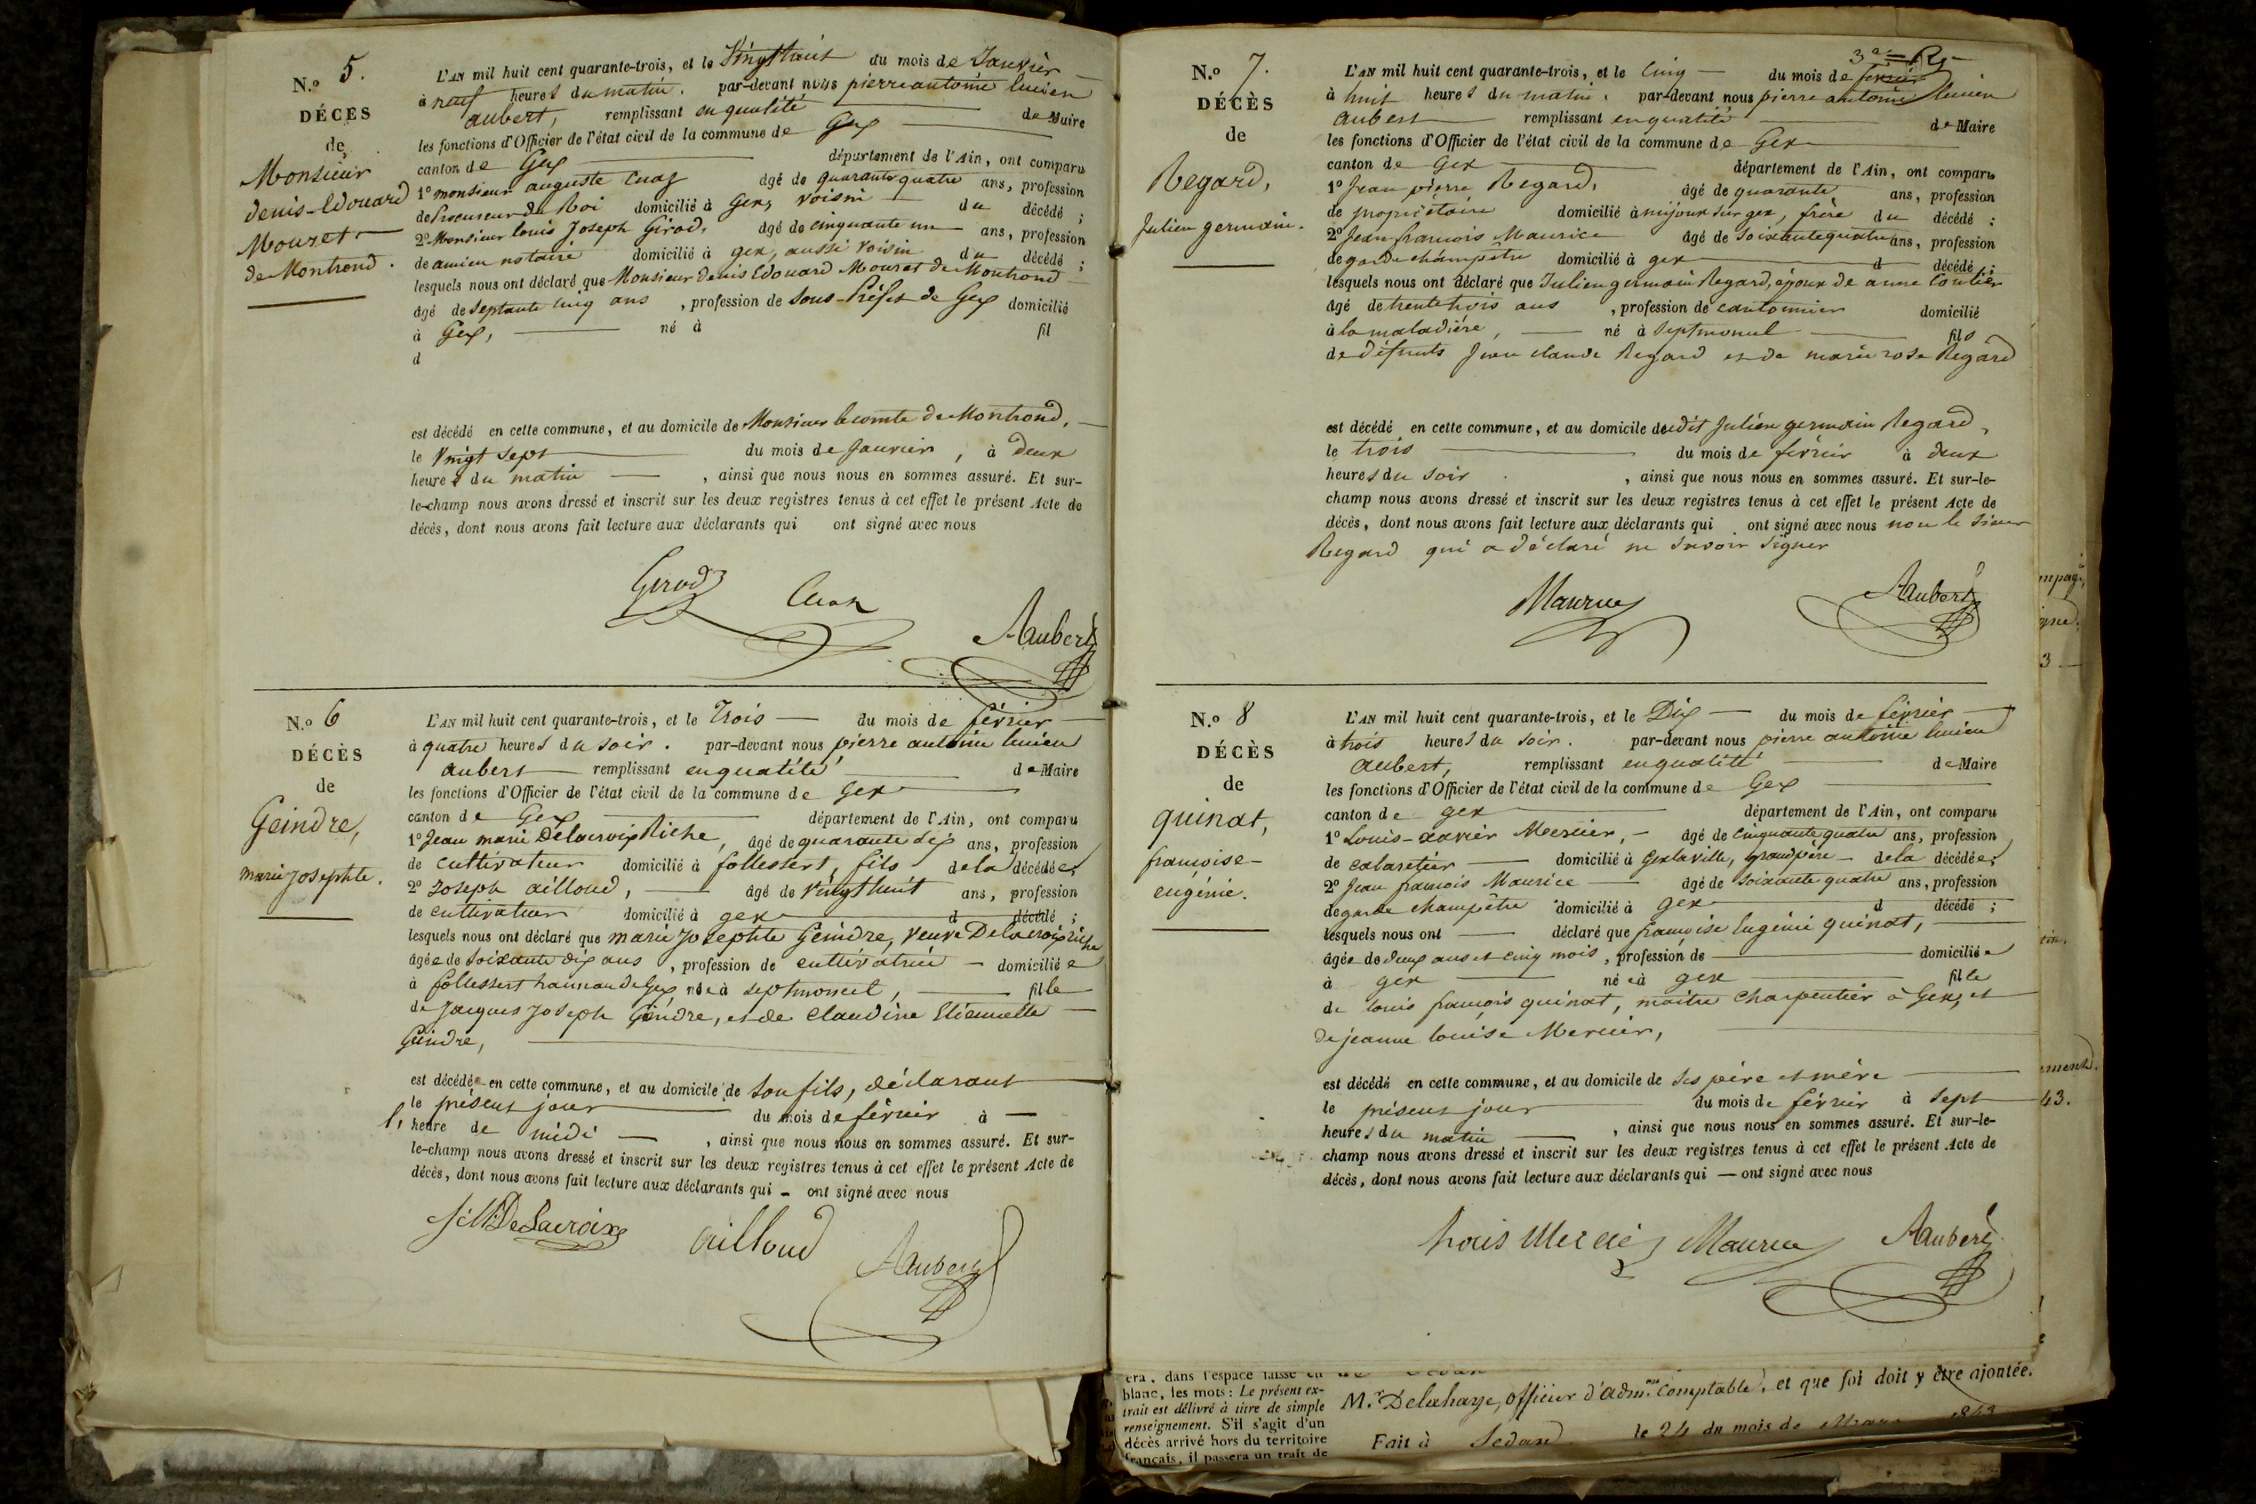 N.º 5.
DÉCÈS
de
Monsieur
Denis-Edouard
Mouret
de Montrond.
L'AN mil huit cent quarante-trois, et le Vingthuit du mois de Janvier
à neuf heures du matin. par-devant nous pierre antoine lucien
aubert, remplissant en qualité de Maire
les fonctions d'Officier de l'état civil de la commune de Gex
canton de Gex département de l'Ain, ont comparu
1º monsieur auguste Cuaz âgé de quarante quatre ans, profession
de Procureur du Roi domicilié à Gex, voisin du décédé ;
2º Monsieur louis Joseph Girod, âgé de cinquante un ans, profession
de ancien notaire domicilié à gex, aussi voisin du décédé ;
lesquels nous ont déclaré que Monsieur Denis Edouard Mouret de Montrond
âgé de septante cinq ans, profession de Sous-Préfet de Gex domicilié
à Gex, né à fil
d
est décédé en cette commune, et au domicile de Monsieur le comte de Montrond,
le Vingt sept du mois de Janvier, à deux
heures du matin, ainsi que nous nous en sommes assuré. Et sur-
le-champ nous avons dressé et inscrit sur les deux registres tenus à cet effet le présent Acte de
décès, dont nous avons fait lecture aux déclarants qui ont signé avec nous
Girod Cuaz
Aubert
N.º 6
DÉCÈS
de
Geindre,
marie Josephte.
L'AN mil huit cent quarante-trois, et le Trois du mois de février
à quatre heures du soir. par-devant nous pierre antoine lucien
aubert remplissant en qualité de Maire
les fonctions d'Officier de l'état civil de la commune de Gex
canton de Gex département de l'Ain, ont comparu
1º Jean marie Delacroix Riche, âgé de quarante dix ans, profession
de cultivateur domicilié à follessert, fils de la décédée,
2º Joseph ailloud, âgé de vingthuit ans, profession
de cultivateur domicilié à gex d décédé ;
lesquels nous ont déclaré que marie Josephte Geindre, veuve Delacroix riche
âgée de soixante dix ans, profession de cultivatrice domiciliée
à follessert hameau de Gex née à septmoncel, fille
de Jacques Joseph Geindre, et de Claudine Etiennette
Geindre,
est décédée en cette commune, et au domicile de son fils, déclarant
le présent jour du mois de février à
l' heure de midi, ainsi que nous nous en sommes assuré. Et sur-
le-champ nous avons dressé et inscrit sur les deux registres tenus à cet effet le présent Acte de
décès, dont nous avons fait lecture aux déclarants qui ont signé avec nous
Delacroix ailloud Aubert
3e R
N.º 7.
DÉCÈS
de
Regard,
Julien germain.
L'AN mil huit cent quarante-trois, et le cinq du mois de février
à huit heures du matin. par-devant nous pierre antoine lucien
aubert remplissant en qualité de Maire
les fonctions d'Officier de l'état civil de la commune de Gex
canton de Gex département de l'Ain, ont comparu
1º Jean pierre Regard, âgé de quarante ans, profession
de propriétaire domicilié à mijoux sur gex, frère du décédé ;
2º Jean françois Maurice âgé de soixante quatre ans, profession
de garde champêtre domicilié à gex d décédé ;
lesquels nous ont déclaré que Julien germain Regard, époux de anne
âgé de trente trois ans, profession de cantonnier domicilié
à la maladière, né à septmoncel fils
de défunts Jean claude Regard et de marie rose Regard
est décédé en cette commune, et au domicile dudit Julien germain Regard,
le trois du mois de février à deux
heures du soir, ainsi que nous nous en sommes assuré. Et sur-le-
champ nous avons dressé et inscrit sur les deux registres tenus à cet effet le présent Acte de
décès, dont nous avons fait lecture aux déclarants qui ont signé avec nous non le sieur
Regard qui a déclaré ne savoir signer
Maurice Aubert
N.º 8
DÉCÈS
de
quinat,
françoise-
eugénie.
L'AN mil huit cent quarante-trois, et le Dix du mois de février
à trois heures du soir. par-devant nous pierre antoine lucien
aubert, remplissant en qualité de Maire
les fonctions d'Officier de l'état civil de la commune de Gex
canton de gex département de l'Ain, ont comparu
1º Louis-xavier Mercier, âgé de cinquante quatre ans, profession
de cabaretier domicilié à Gex la ville, grand père de la décédée,
2º Jean françois Maurice âgé de soixante quatre ans, profession
de garde champêtre domicilié à gex d décédé ;
lesquels nous ont déclaré que françoise Eugénie quinat,
âgée de deux ans et cinq mois, profession de domiciliée
à gex née à gex fille
de louis françois quinat, maître charpentier à Gex, et
de jeanne louise Mercier,
est décédé en cette commune, et au domicile de ses père et mère
le présent jour du mois de février à sept
heures du matin, ainsi que nous nous en sommes assuré. Et sur-le-
champ nous avons dressé et inscrit sur les deux registres tenus à cet effet le présent Acte de
décès, dont nous avons fait lecture aux déclarants qui ont signé avec nous
Louis Mercier Maurice Aubert
43.
blanc, les mots : Le présent ex-
trait est délivré à titre de simple
renseignement. S'il s'agit d'un
décès arrivé hors du territoire
français, il passera un trait de
M.r Delahaye, officier d'adm.on comptable, et que foi doit y être ajoutée.
Fait à Sedan le 24 du mois de 1843